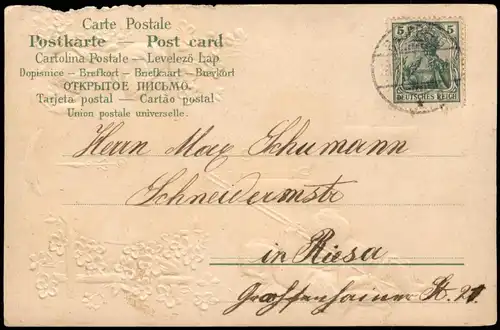 Carte Postale
Postkarte — Post card
Cartolina Postale — Levelező Lap
Dopisnice — Brefkort — Briefkaart — Brevkort
ОТКРЫТОЕ ПИСЬМО.
Tarjeta postal — Cartão postal
Union postale universelle.
5 5
DEUTSCHES REICH
Herrn Max Schumann
Schneidermstr
in Riesa
Großenhainer St. 21.